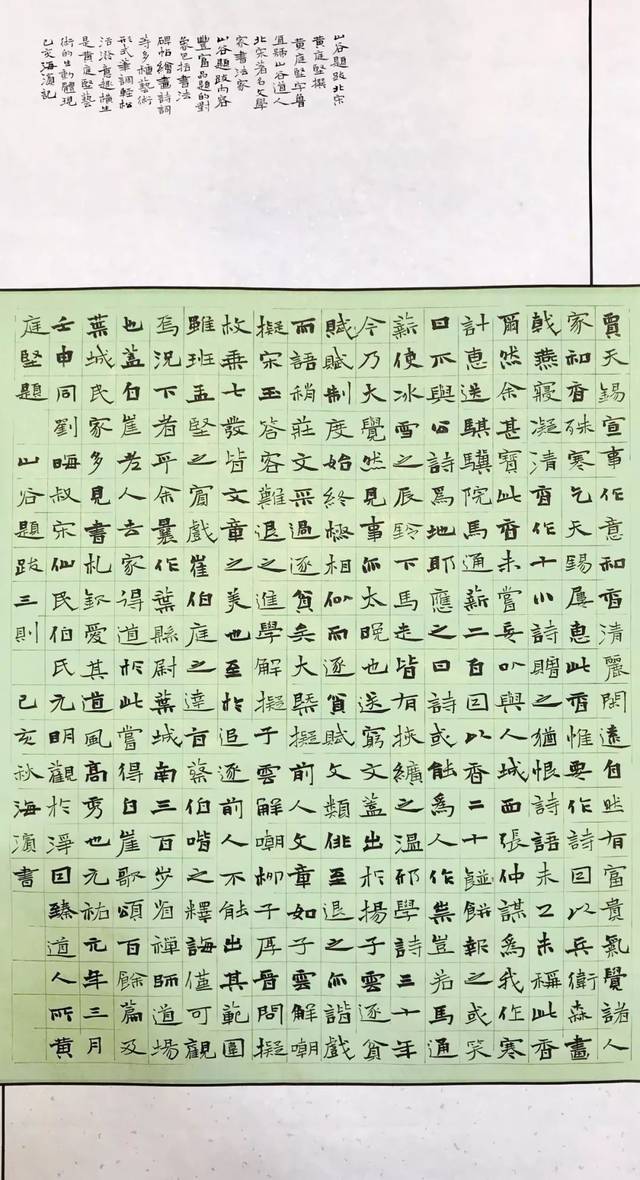 山谷題跋北宋
黃庭堅撰
黃庭堅字魯
直號山谷道人
北宋著名文學
家書法家
山谷題跋內容
豐富品題的對
象包括書法
碑帖繪畫詩詞
等多種藝術
形式筆調輕松
活潑意趣橫生
是黃庭堅藝
術的生動體現
己亥海濱記
賈天錫宣事作意和香清麗閑遠自然有富貴氣覺諸人
家和香殊寒乞天錫屢惠此香惟要作詩因以兵衛森畫
戟燕寢凝清香作十小詩贈之猶恨詩語未工未稱此香
爾然余甚寶此香未嘗妄以與人城西張仲謀為我作寒
計惠送騏驥院馬通薪二百因以香二十餅報之或笑
曰不與公詩為地耶應之曰詩或能為人作祟豈若馬通
薪使冰雪之辰鈴下馬走皆有挾纊之溫邪學詩三十年
今乃大覺然見事亦太晚也送窮文蓋出於揚子雲逐貧
賦賦制度始終極相似而逐貧賦文類俳至退之亦諧戲
而語稍莊文采過逐貧矣大槩擬前人文章如子雲解嘲
擬宋玉答客難退之進學解擬子雲解嘲柳子厚晉問擬
枚乘七發皆文章之美也至於追逐前人不能出其範圍
雖班孟堅之賓戲崔伯庭之達旨蔡伯喈之釋誨僅可觀
焉況下者乎余曩作葉縣尉葉城南三百步省禪師道場
也蓋白崖老人去家得道於此嘗得白崖歌頌百餘篇及
葉城民家多見書札欽愛其道風高秀也元祐元年三月
壬申同劉晦叔宋仙民伯氏元明觀於淨因臻道人所黃
庭堅題 山谷題跋三則 己亥秋海濱書